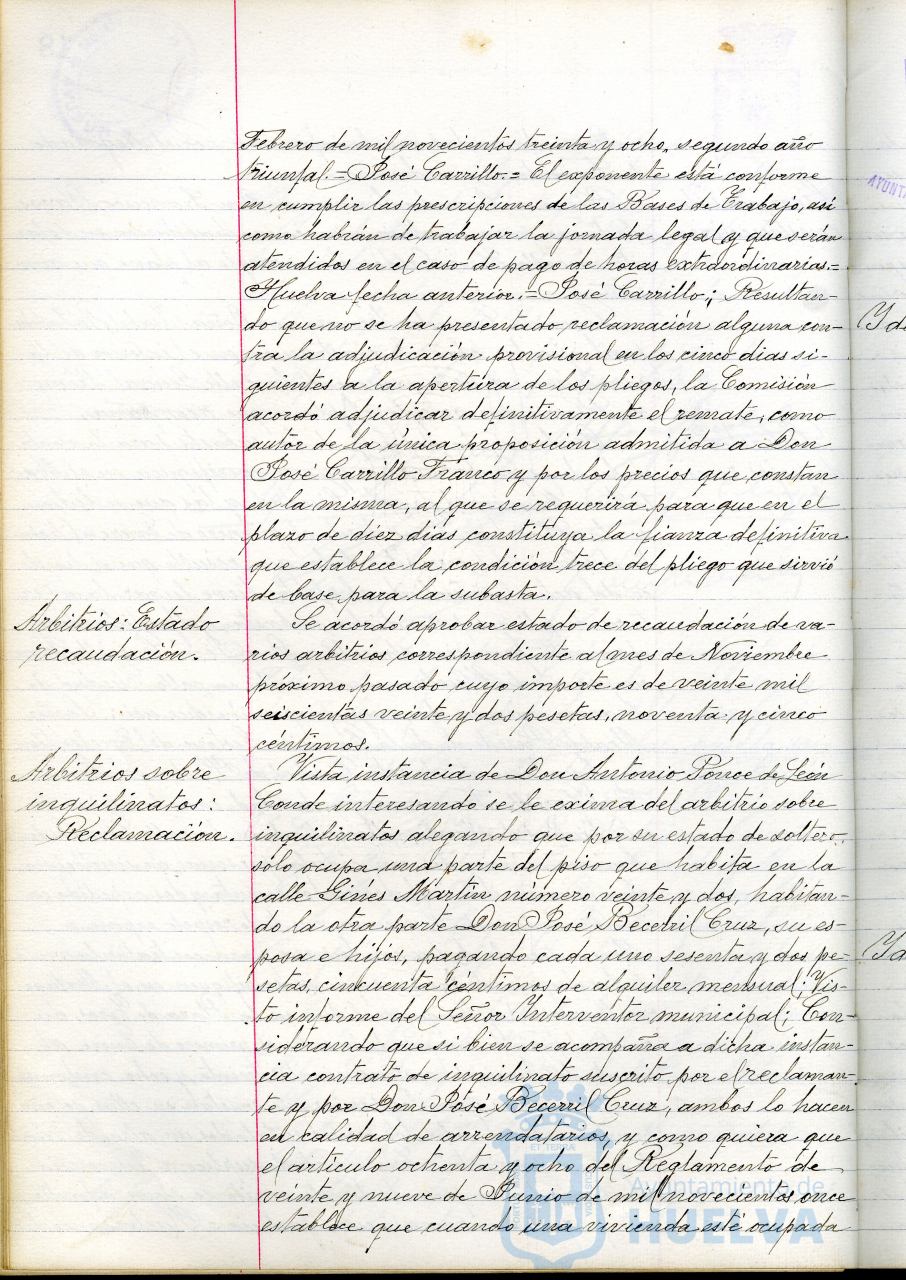 Febrero de mil novecientos treinta y ocho, segundo año
triunfal.=José Carrillo.= El exponente está conforme
en cumplir las prescripciones de las Bases de Trabajo, así
como habrán de trabajar la jornada legal y que serán
atendidos en el caso de pago de horas extraordinarias.=
Huelva fecha anterior.=José Carrillo.; Resultan-
do que no se ha presentado reclamación alguna con-
tra la adjudicación provisional en los cinco dias si-
guientes a la apertura de los pliegos, la Comisión
acordó adjudicar definitivamente el remate, como
autor de la única proposición admitida a Don
José Carrillo Franco y por los precios que constan
en la misma, al que se requerirá para que en el
plazo de diez dias constituya la fianza definitiva
que establece la condición trece del pliego que sirvió
de base para la subasta.
Arbitrios: Estado
recaudación.
Se acordó aprobar estado de recaudación de va-
rios arbitrios correspondiente al mes de Noviembre
próximo pasado cuyo importe es de veinte mil
seiscientas veinte y dos pesetas, noventa y cinco
céntimos.
Arbitrios sobre
inquilinatos:
Reclamación.
Vista instancia de Don Antonio Ponce de León
Conde interesando se le exima del arbitrio sobre
inquilinatos alegando que por su estado de soltero,
sólo ocupa una parte del piso que habita en la
calle Ginés Martín número veinte y dos, habitan-
do la otra parte Don José Becerril Cruz, su es-
posa e hijos, pagando cada uno sesenta y dos pe-
setas, cincuenta céntimos de alquiler mensual; Vis-
to informe del Señor Interventor municipal; Con-
siderando que si bien se acompaña a dicha instan-
cia contrato de inquilinato suscrito por el reclaman-
te y por Don José Becerril Cruz, ambos lo hacen
en calidad de arrendatarios, y como quiera que
el artículo ochenta y ocho del Reglamento de
veinte y nueve de Junio de mil novecientos once
establece que cuando una vivienda esté ocupada
Ayuntamiento de
HUELVA